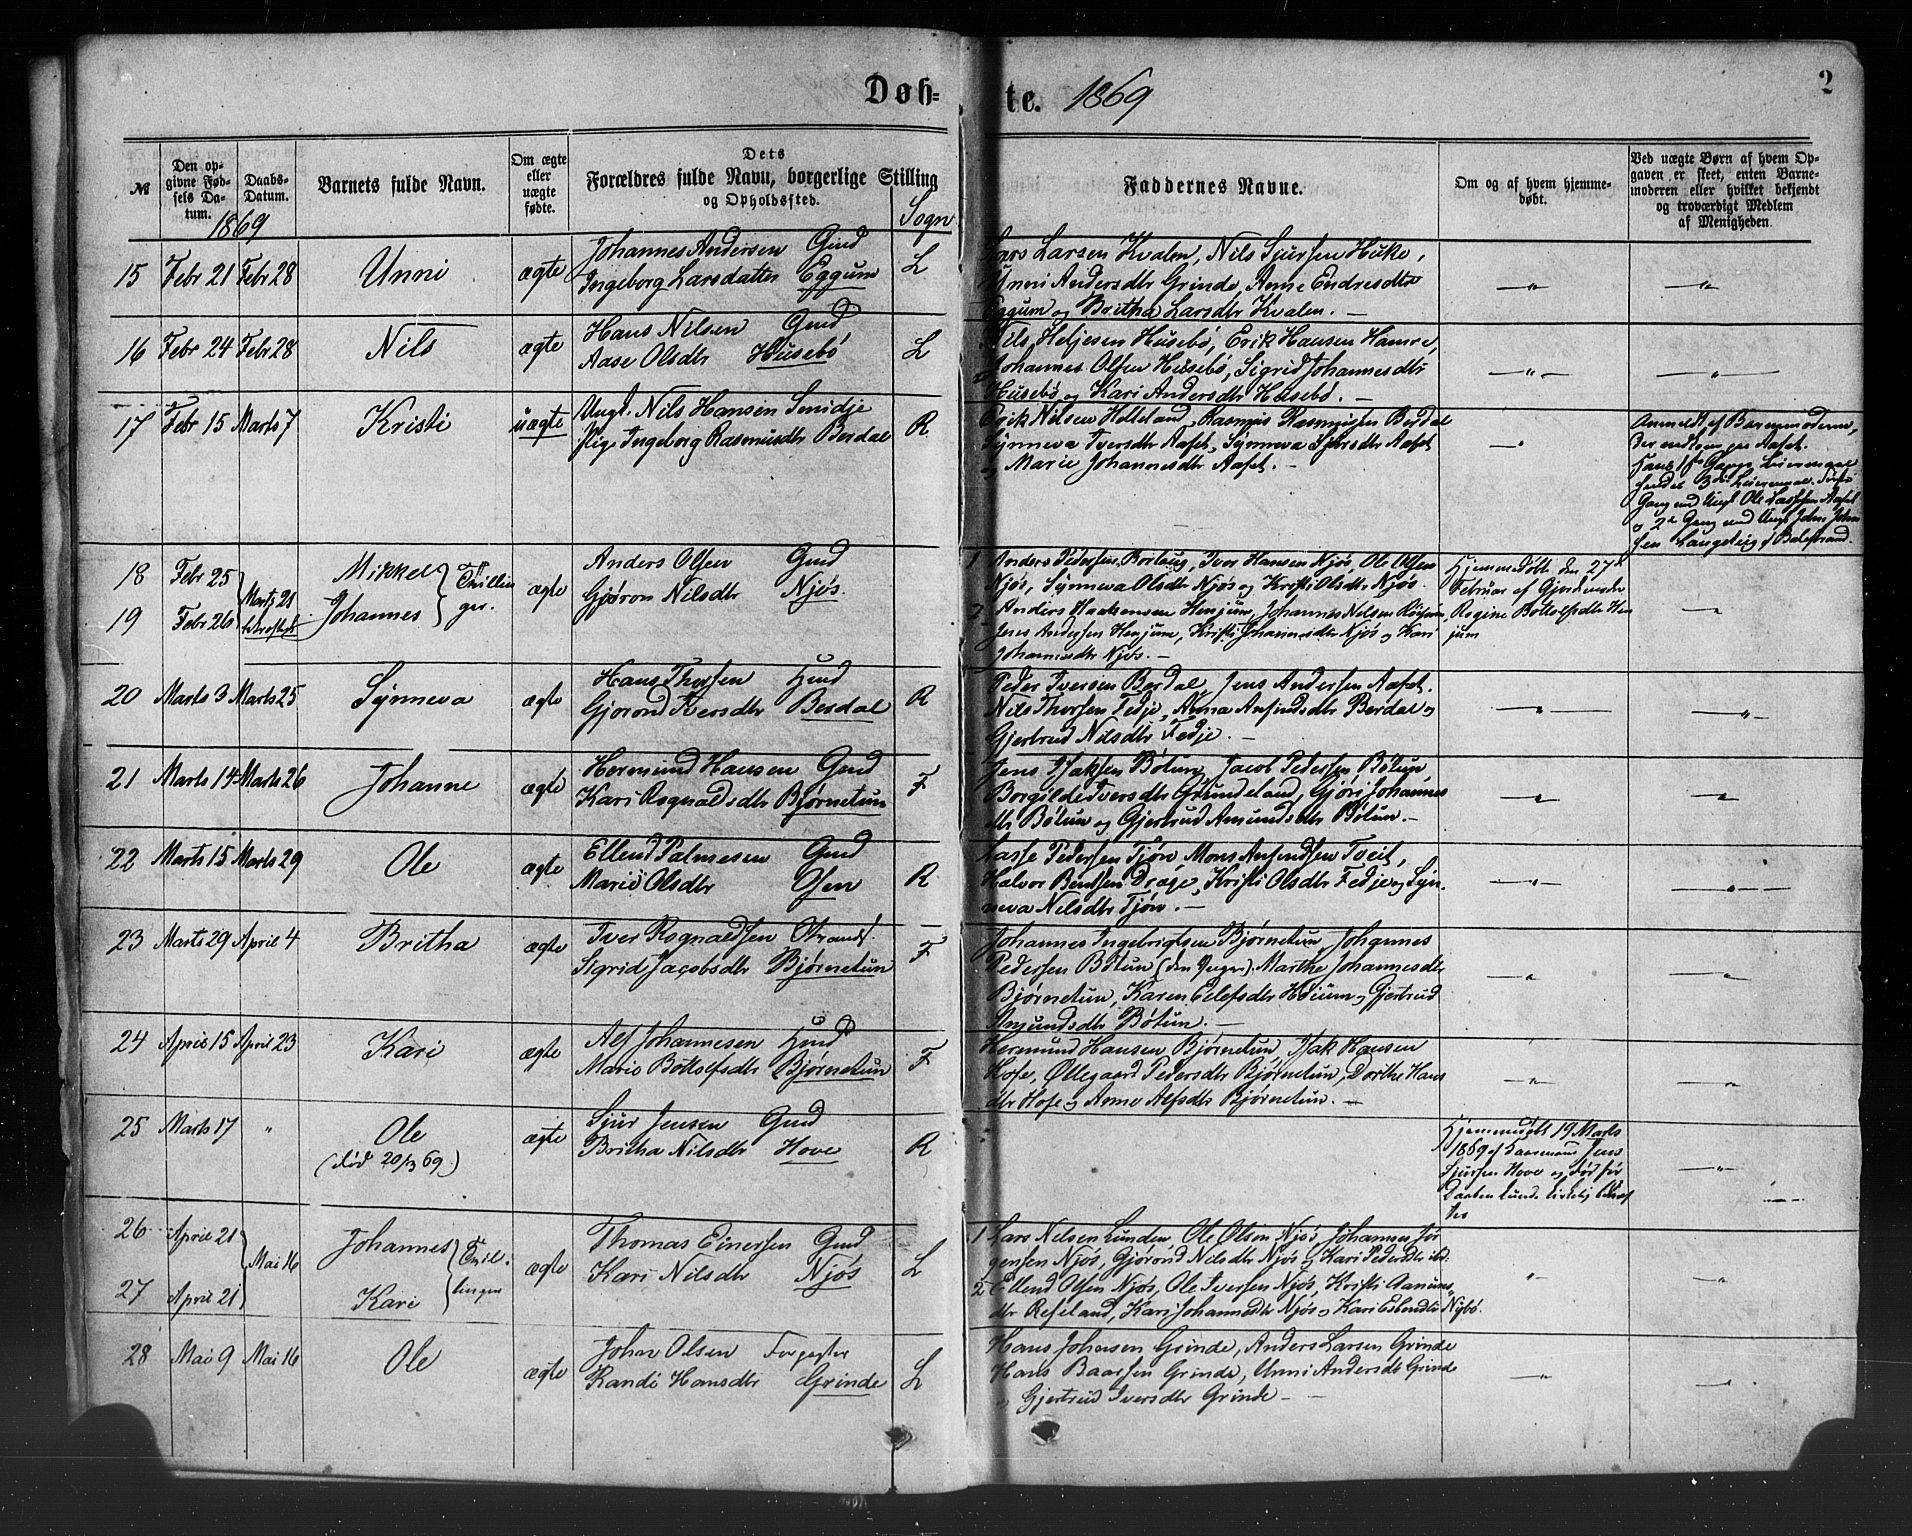 Døb-
te. 1869
2
№
Den op-
givne Fød-
sels Da-
tum.
Daabs-
Datum.
1869
Barnets fulde Navn.
Om ægte
eller
uægte
fødte.
Dets
Forældres fulde Navn, borgerlige Stilling
og Opholdssted.
Sogn
Faddernes Navne.
Om og af hvem hjemme-
døbt.
Ved uægte Børn af hvem Op-
gaven er skeet, enten Barne-
moderen eller hvilket bekjendt
og troværdigt Medlem
af Menigheden.
15 Febr 21 Febr 28 Unni ægte
Johannes Andersen Gmd
Ingeborg Larsdatter Eggum L
Lars Larsen Kvalen, Nils Sjursen Huke,
Unni Andersdtr Grinde, Anne Endresdtr
Eggum og Britha Larsdtr Kvalen. —
16 Febr 24 Febr 28 Nils ægte
Hans Nilsen Gmd
Aase Olsdtr Husebø L
Nils Heljesen Husebø, Erik Hansen Hamre,
Johannes Olsen Husebø, Sigrid Johannesdtr
Husebø og Kari Andersdtr Husebø. —
17 Febr 15 Marts 7 Kristi uægte
Ungk. Nils Hansen Smidje
Pige Ingeborg Rasmusdtr Berdal R
Erik Nilsen Holleland, Rasmus Rasmussen Berdal
Synneva Iversdtr Aafet, Synneva Sjursdtr Aafet
og Marie Johannesdtr Aafet. —
Anmeldt af Barnemoderen,
Hans 1ste Gangs Leiermaal
hendes 3die Leiermaal. Første
Gang med Ungk Ole Lassesen Aafet
og 2den Gang med Ungk John John
sen Langeteig i Balestrand.
18 Febr 25 Mikkel
19 Febr 26 Johannes
Marts 21
Tvillin
ger.
ægte
Anders Olsen Gmd
Gjøron Nilsdtr Njøs.
1 Anders Pedersen Borlaug, Iver Hansen Njøs, Ole Olsen
Njøs, Synneva Olsdtr Njøs og Kristi Olsdtr Njøs
2 Anders Haakensen Henjum, Johannes Nilsen
Jens Andersen Henjum, Kristi Johannesdtr Njøs og Kari
Johannesdtr Njøs. —
Hjemmedøbt den 27de
Februar af Gjordemoder
Regine Bottolfsdtr Hen
jum
20 Marts 3 Marts 25 Synneva ægte
Hans Thorsen Hmd
Gjørond Iversdtr Berdal R
Peder Iversen Berdal, Jens Andersen Aafet.
Nils Thorsen Fedje, Anna Anfindsdtr Berdal og
Gjertrud Nilsdtr Fedje. —
21 Marts 14 Marts 26 Johanne ægte
Hermund Hansen Gmd
Kari Rognaldsdtr Bjørnetun F
Jens Isaksen Bøtun, Jacob Pedersen Bøtun
Borgilde Iversdtr Grundeland, Gjøri Johannes
dtr Bøtun og Gjertrud Amundsdtr Bøtun. —
22 Marts 15 Marts 29 Ole ægte
Ellend Palmesen Gmd
Marie Olsdtr Osen R
Lasse Pedersen Tjøn, Mons Anfindsen Tveit,
Halvor Bentsen Drage, Kristi Olsdtr Fedje og Syn-
neva Nilsdtr Tjøn. —
23 Marts 29 April 4 Britha ægte
Iver Rognaldsen, Strands.
Sigrid Jacobsdtr Bjørnetun F
Johannes Ingebrigtsen Bjørnetun, Johannes
Pedersen Bøtun (den Yngre), Marthe Johannesdtr
Bjørnetun, Karen Eilefsdtr Høium og Gjertrud
Amundsdtr Bøtun. —
24 April 15 April 23 Kari ægte
Alf Johannesen Hmd
Marie Bottolfsdtr Bjørnetun F
Hermund Hansen Bjørnetun, Isak Hansen
Hofe, Øllegaard Pedersdtr Bjørnetun, Dorthe Hans
dtr Hofe og Anne Alfsdtr Bjørnetun. —
25 Marts 17 „ Ole ægte
(død 20/3 69.)
Sjur Jensen Gmd
Britha Nilsdtr Hove R
Hjemmedøbt 19 Marts
1869 af Jens
Sjursen Hove og død før
26 April 21 Johannes
27 April 21 Kari
Mai 16
Tvil-
linger
ægte
Thomas Einersen Gmd
Kari Nilsdtr Njøs L
1 Lars Nilsen Lunden, Ole Olson Njøs, Johannes Jør
gensen Njøs, Gjørond Nilsdtr Njøs og Kari Pedersdtr ibd.
2 Ellend Olsen Njøs, Ole Iversen Njøs, Kristi Aamunds
dtr Refeland, Kari Johannesdtr Njøs og Kari Esbendtr Nybø.
28 Mai 9 Mai 16 Ole ægte
John Olsen Forpagter
Randi Hansdtr Grinde L
Hans Johnsen Grinde, Anders Larsen Grinde
Hans Baarsen Grinde, Unni Andersdtr Grinde
og Gjertrud Iversdtr Grinde —